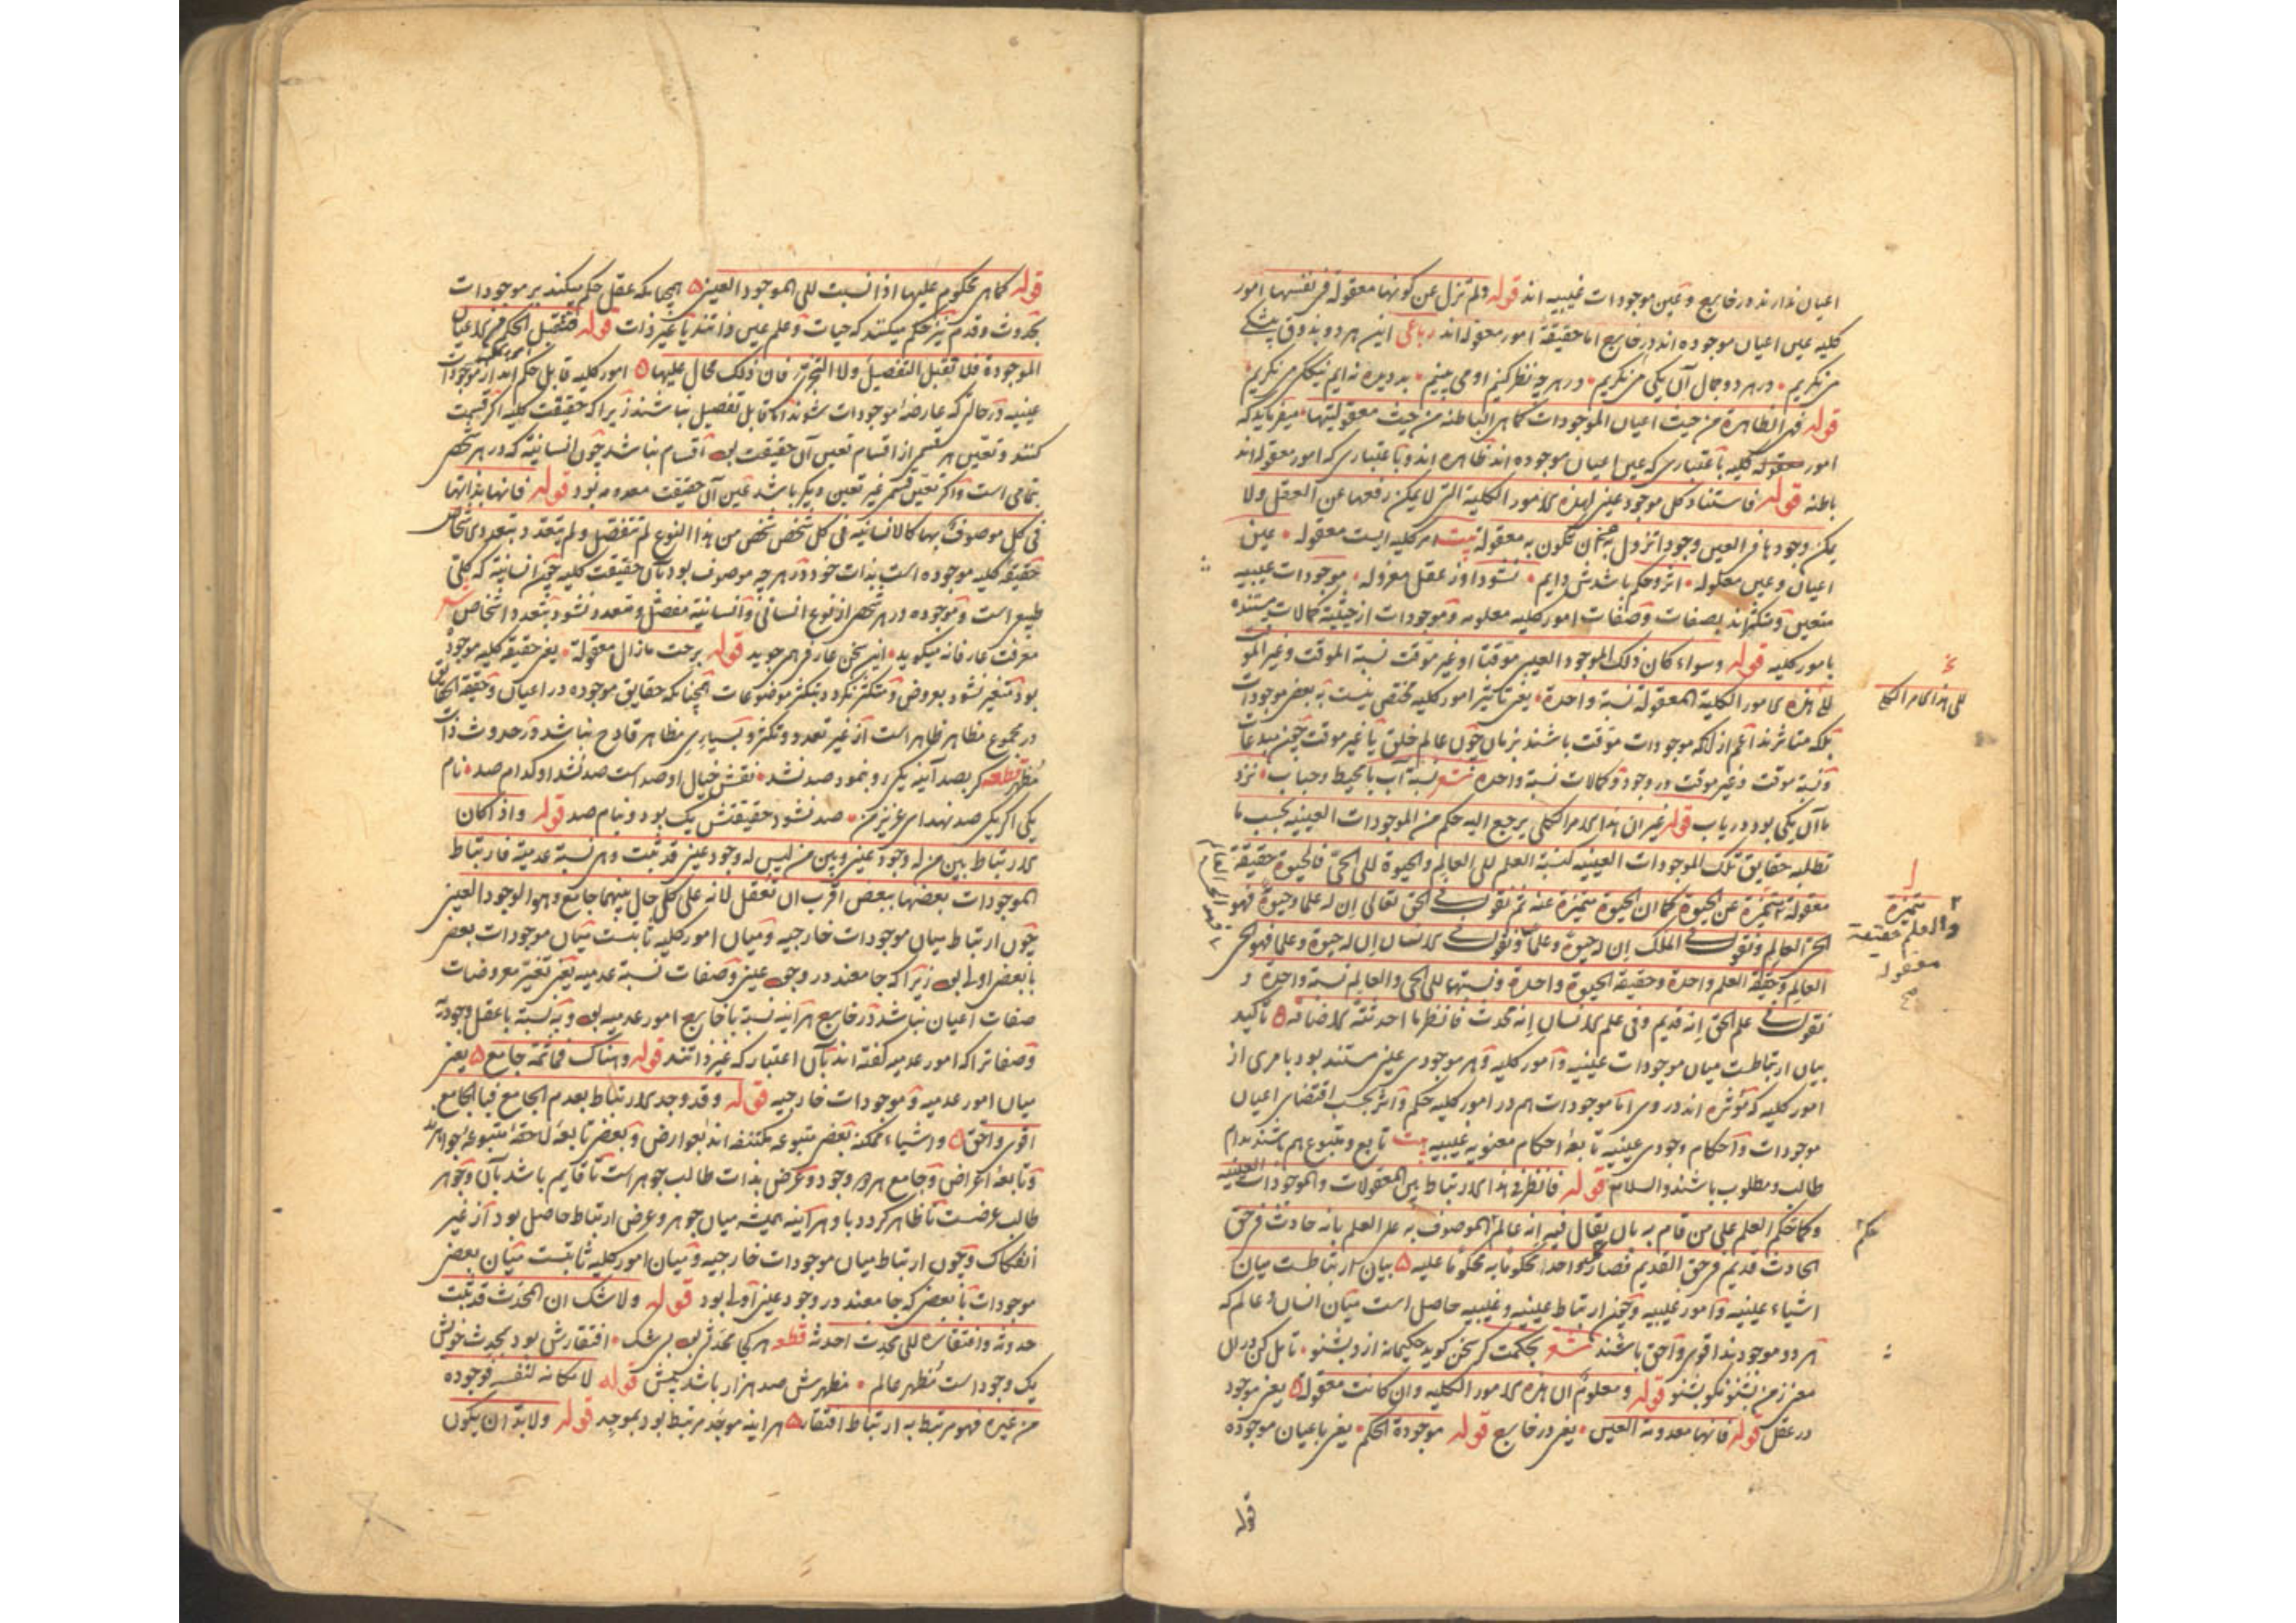 اعیان ندارند در خارج و عین موجودات غیبیه اند قوله ولم تزل عن کونها معقولة فی نفسها امور
کلیه عین اعیان موجوده اند در خارج اما حقیقة امور معقوله اند رباعی این هر دو بذوق
می نگریم در هر دو جمال آن یکی می نگریم در هر چه نظر کنیم او می بینیم
قوله فهی الظاهرة من حیث اعیان الموجودات کما هی الباطنة من حیث معقولیتها میفرماید که
امور کلیه باعتباری که عین اعیان موجوده اند ظاهره اند و باعتباری که امور معقوله اند
باطنه قوله فاستناد کل موجود عینی لهذه الامور الکلیة التی لا یمکن رفعها عن العقل ولا
یمکن وجودها فی العین وجودا تزول به عن ان تکون به معقولة بیت امر کلیه ایست معقوله عین
اعیان و عین معلوله اثر و حکم باشدش دایم نشود او ز عقل معزوله موجودات عینیه
متعین و متکثر اند بصفات و صفات امور کلیه معلومه و موجودات از حیثیة کمالات مستند
بامور کلیه قوله وسواء کان ذلک الموجود العینی موقتا او غیر موقت نسبة الموقت وغیر الموقت
الی هذه الامور الکلیة المعقولة نسبة واحدة یعنی تاثیر امور کلیه مختص نیست به بعض موجودات
بلکه متاثرند اعم از آنکه موجودات موقت باشند بزمان چون عالم خلق یا غیر موقت چون مبدعات
و نسبة موقت و غیر موقت در وجود و کمالات نسبة واحده شعر نسبة آب با محیط و حباب نزد
ما آن یکی بود دریاب قوله غیر ان هذا الامر الکلی یرجع الیه حکم من الموجودات العینیة بحسب ما
تطلبه حقایق تلک الموجودات العینیة کنسبة العلم الی العالم والحیوة الی الحی فالحیوة حقیقة
معقولة متمیزة عن الحیوة کما ان الحیوة متمیزة عنه ثم نقول فی الحق تعالی ان له علما وحیوة فهو
الحی العالم ونقول فی الملک ان له حیوة وعلما ونقول فی الانسان ان له حیوة وعلما فهو الحی
العالم وحقیقة العلم واحدة وحقیقة الحیوة واحدة ونسبتهما الی الحی والعالم نسبة واحدة و
نقول فی علم الحق انه قدیم وفی علم الانسان انه محدث فانظر ما احدثته الاضافة تأکید
بیان ارتباطست میان موجودات عینیه و امور کلیه و هر موجودی عینی مستند بود بامری از
امور کلیه که مؤثره اند در وی اما موجودات هم در امور کلیه حکم و اثر بحسب اقتضای اعیان
موجودات و احکام وجودی عینیه تابعه احکام معنویه غیبیه بیت تابع و متبوع هم باشند مدام
طالب و مطلوب باشند والسلام قوله فانظر فی هذا الارتباط بین المعقولات والموجودات العینیة
وکما تحکم العلم علی من قام به بان یقال فیه انه عالم الموصوف به علی العلم بانه حادث فی حق
الحادث قدیم فی حق القدیم فصار کل واحد محکوما به محکوما علیه بیان ارتباطست میان
اشیاء عینیه و امور غیبیه و چون ارتباط عینیه و غیبیه حاصل است میان انسان و عالم که
هر دو موجودند اقوی و احق باشند شعر بحکمت گر سخن گوید حکیمانه ازو بشنو تامل کن در ان
معنی ز من بشنو نکو بشنو قوله ومعلوم ان هذه الامور الکلیة وان کانت معقولة یعنی موجود
در عقل قوله فانها معدومة العین یعنی در خارج قوله موجودة الحکم یعنی باعیان موجوده
الی هذا الامر الکلی
متمیزة
والعلم حقیقة
معقولة
حکم
قوله
قوله کما هی محکوم علیها اذا نسبت الی الموجود العینی همچنانکه عقل حکم میکند بر موجودات
بحدوث و قدم نیز حکم میکند که حیات و علم عین ذاتند یا غیر ذات قوله فتقبل الحکم فی الاعیان
الموجودة فلا تقبل التفصیل ولا التجزی فان ذلک محال علیها امور کلیه قابل حکم اند از موجودات
عینیه در حالتی که عارضه موجودات شوند اما قابل تفصیل نباشند زیرا که حقیقت کلیه اگر قسمت
کنند و تعین هر قسمی از اقسام تعین آن حقیقت بود اقسام نباشد چون انسانیة که در هر شخصی
بتمامی است و اگر تعین قسمی غیر تعین دیگر باشد عین آن حقیقت معدومه بود قوله فانها بذاتها
فی کل موصوف بها کالانسانیة فی کل شخص شخص من هذا النوع لم تتفصل ولم تتعدد بتعدد الاشخاص
حقیقة کلیه موجوده است بذات خود در هر چه موصوف بود بآن حقیقت کلیه چون انسانیة که کلی
طبیعی است و موجوده در هر شخصی از نوع انسانی و انسانیة مفصل و متعدد نشود بتعدد اشخاص
معرفت عارفانه میگوید این سخن عارفی همی جوید قوله برحت ما زال معقولة یعنی حقیقة کلیه موجوده
بود متغیر نشود بعروض و متکثر نگردد بتکثر موضوعات همچنانکه حقایق موجوده در اعیان و حقیقة الحقایق
در مجموع مظاهر ظاهر است از غیر تعدد و تکثر و بسیاری مظاهر قادح نباشد در حدوث ذات
مظهر قطعه گر بصد آینه یکی رو بنمود صد نشد نقش خیال او صد است صد نشد او کدام صد نام
یکی اگر یکی صد نهد ای عزیز من صد نشود حقیقتش یک بود و بنام صد قوله واذا کان
الارتباط بین من له وجود عینی وبین من لیس له وجود عینی قد ثبت وهی نسبة عدمیة فارتباط
الموجودات بعضها ببعض اقرب ان تعقل لانه علی کل حال بینهما جامع وهو الوجود العینی
چون ارتباط میان موجودات خارجیه و میان امور کلیه ثابتست میان موجودات بعضی
با بعض اولی بود زیرا که جامعند در وجود عینی و صفات نسبة عدمیه یعنی بغیر معروضات
صفات اعیان نباشد در خارج هر آینه نسبة با خارج امور عدمیه بود و به نسبة با عقل وجودیه
و صفات را که امور عدمیه گفته اند بآن اعتبار که غیر ذاتند قوله وهناک فما ثمة جامع یعنی
میان امور عدمیه و موجودات خارجیه قوله وقد وجد الارتباط بعدم الجامع فبالجامع
اقوی واحق و اشیاء ممکنه بعضی متبوعه مکتنفه اند بعوارض و بعضی تابعه لاحقه متبوعه جواهر
و تابعه اعراض و جامع هر دو وجود و عرض بذات طالب جوهر است تا قایم باشد بآن و جوهر
طالب عرضست تا ظاهر گردد با و هر آینه همیشه میان جوهر و عرض ارتباط حاصل بود از غیر
انفکاک و چون ارتباط میان موجودات خارجیه و میان امور کلیه ثابتست میان بعضی
موجودات با بعضی که جامعند در وجود عینی اولی بود قوله ولا شک ان المحدث قد ثبت
حدوثه وافتقاره الی محدث احدثه قطعه هر کجا محدثی بود بی شک افتقارش بود بمحدث خویش
یک وجود است مظهر عالم مظهرش صد هزار باشد بیش قوله لامکانه لنفسه فوجوده
من غیره فهو مرتبط به ارتباط افتقار هر آینه موجد مرتبط بود بموجد قوله ولا بد ان یکون